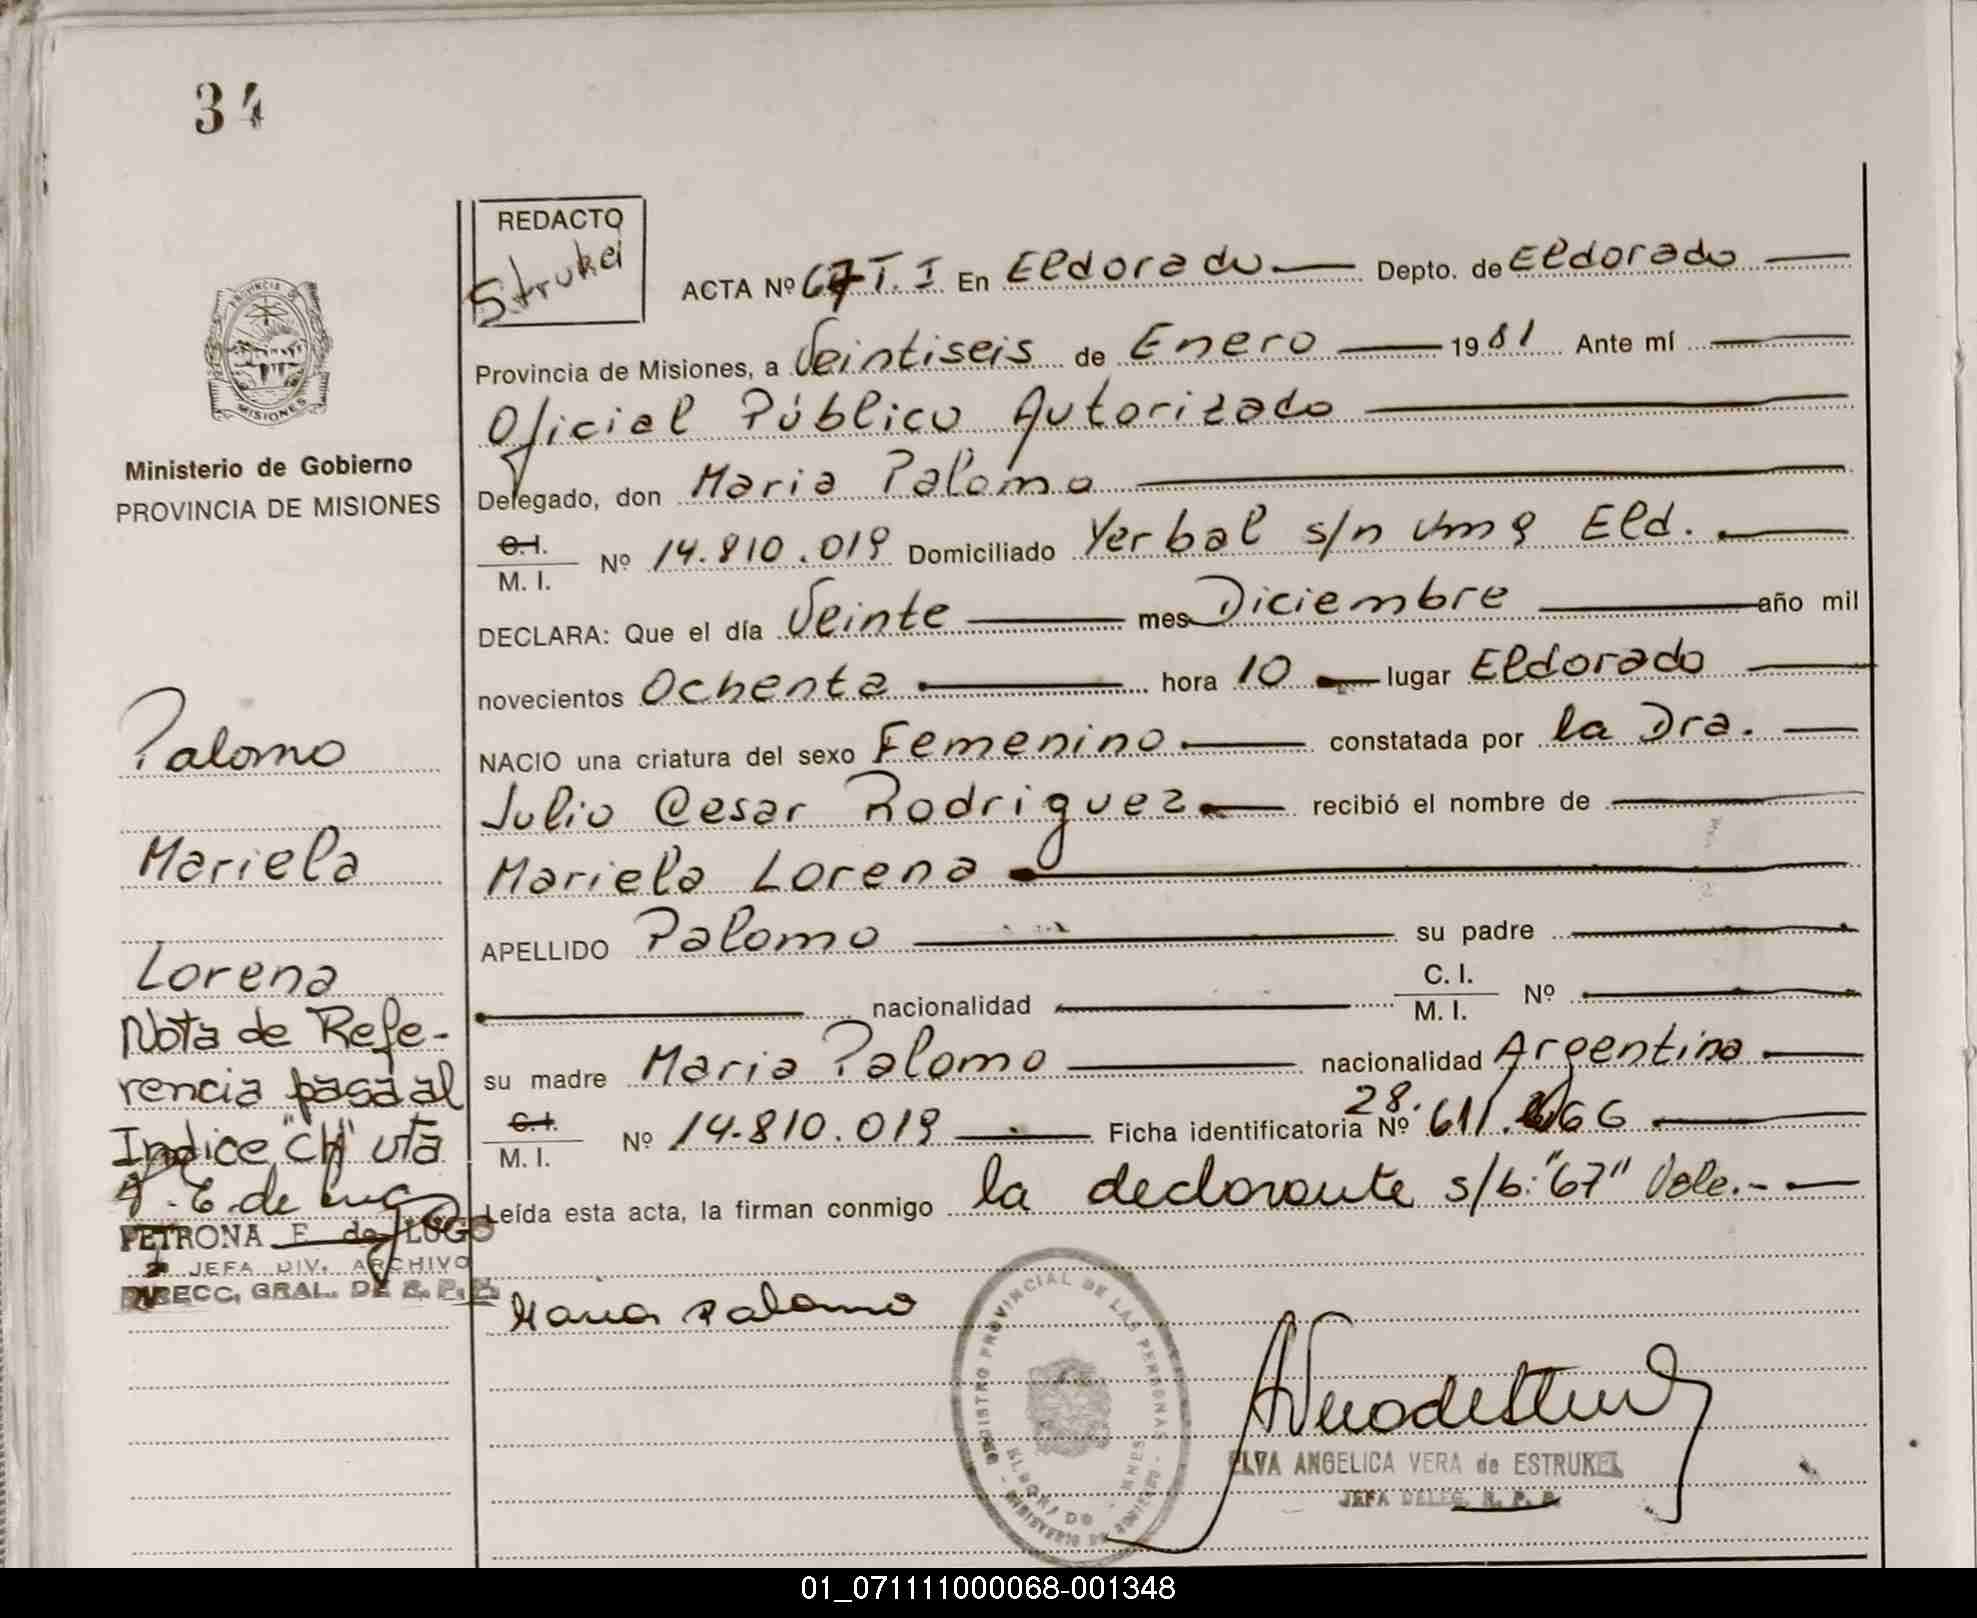 34
REDACTO
Strukel
ACTA Nº 67 T. I En Eldorado Depto. de Eldorado
Provincia de Misiones, a Veintiseis de Enero 1981 Ante mí
Oficial Público Autorizado
Delegado, don Maria Palomo
C.I. M. I. Nº 14.810.019 Domiciliado Yerbal s/n Eld.
DECLARA: Que el día Veinte mes Diciembre año mil
novecientos Ochenta hora 10 lugar Eldorado
NACIO una criatura del sexo Femenino constatada por la Dra.
Julio Cesar Rodriguez recibió el nombre de
Mariela Lorena
APELLIDO Palomo su padre
nacionalidad C. I. M. I. Nº
su madre Maria Palomo nacionalidad Argentina
C.I. M. I. Nº 14.810.019 Ficha identificatoria Nº 28.611.66
Leída esta acta, la firman conmigo la declarante s/b: "67" Vale.-
Maria Palomo
REGISTRO PROVINCIAL DE LAS PERSONAS
ELDORADO - MNES
MINISTERIO DE GOBIERNO
ELVA ANGELICA VERA de ESTRUKEL
JEFA DELEG. R. P. P.
PROVINCIA DE
MISIONES
Ministerio de Gobierno
PROVINCIA DE MISIONES
Palomo
Mariela
Lorena
Nota de Refe-
rencia pasa al
Indice "CH"
E. de Lugo
PETRONA E. de LUGO
JEFA DIV. ARCHIVO
DIRECC. GRAL. DE R. P. P.
01_071111000068-001348